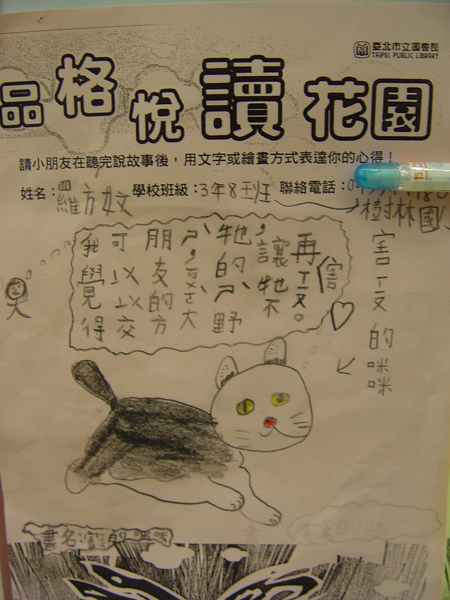 臺北市立圖書館
TAIPEI PUBLIC LIBRARY
品格悅讀花園
請小朋友在聽完說故事後，用文字或繪畫方式表達你的心得！
姓名：羅方妏 學校班級：3年8班 聯絡電話：0
樹林國
我覺得
可以以交
朋友的方
ㄕˋ，ㄎㄨㄛˋ大
牠的ㄕˋ野
，讓牠不
再害ㄒㄧㄡ。
害ㄒㄧㄡ的咪咪
書名:害